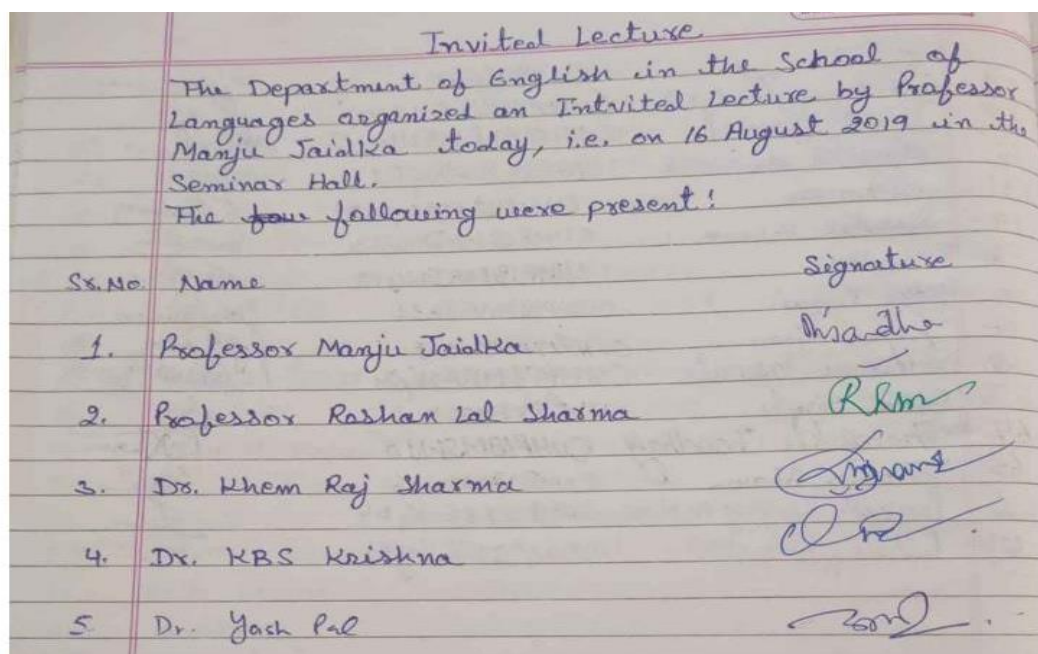 Invited Lecture
The Department of English in the School of
Languages organized an Intvited Lecture by Professor
Manju Jaidka today, i.e. on 16 August 2019 in the
Seminar Hall.
The four following were present:
Sr.No. Name Signature
1. Professor Manju Jaidka
2. Professor Roshan Lal Sharma
3. Dr. Khem Raj Sharma
4. Dr. KBS Krishna
5. Dr. Yash Pal